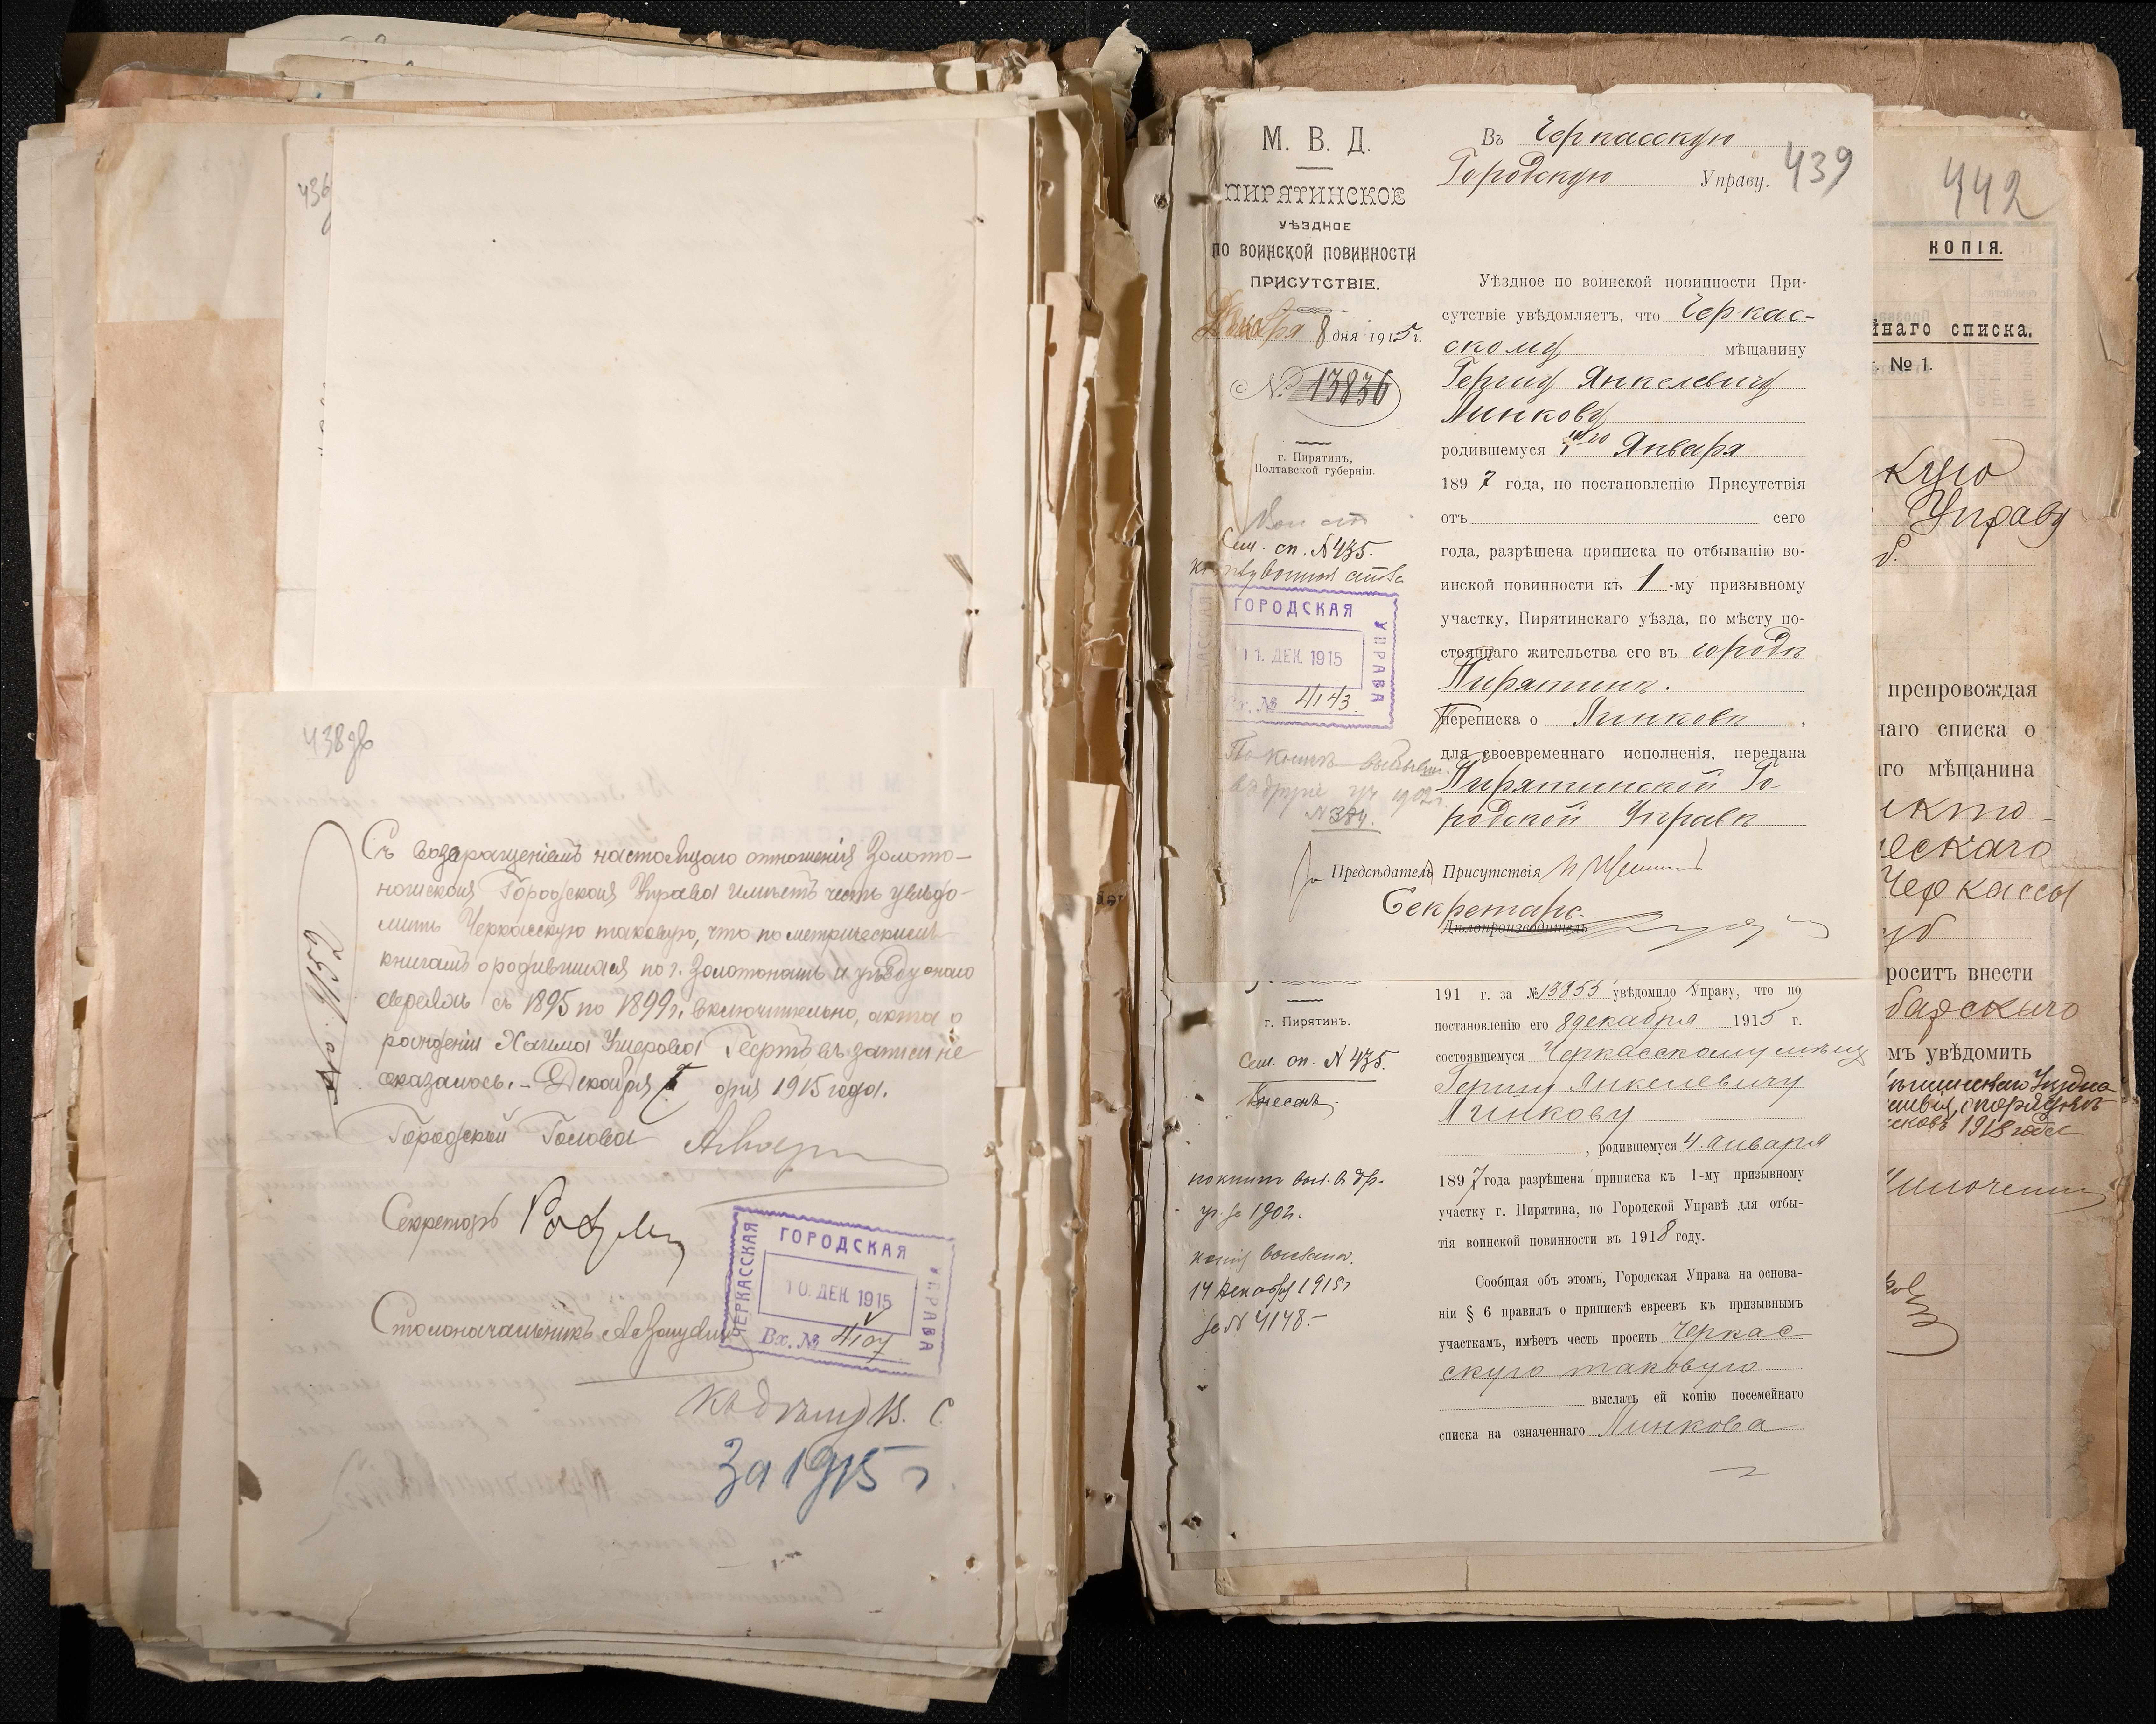 436
438об
Съ возвращеніемъ настоящаго отношенія Золото-
ношская Городская Управа имѣетъ честь увѣдо-
мить Черкасскую таковую, что по метрическимъ
книгамъ о родившихся по г. Золотоношѣ и уѣзду онаго
евреяхъ съ 1895 по 1899 г. включительно, акта о
рожденіи Хаима въ записи не
оказалось. – Декабря дня 1915 года.
Городской Голова
Секретарь
Столоначальникъ
ЧЕРКАССКАЯ
ГОРОДСКАЯ
УПРАВА
10. ДЕК. 1915
Вх. № 4107
Къ дѣлу В. С.
За 1915 г
М. В. Д.
ПИРЯТИНСКОЕ
УѢЗДНОЕ
ПО ВОИНСКОЙ ПОВИННОСТИ
ПРИСУТСТВІЕ.
Декабря 8 дня 1915 г.
№ 13836
г. Пирятинъ,
Полтавской губерніи.
Сем. сп. № 435.
ГОРОДСКАЯ
УПРАВА
11. ДЕК. 1915
Вх. № 4143.
По книгѣ
1902 г.
№ 384.
Въ Черкасскую
Городскую Управу.
439
Уѣздное по воинской повинности При-
сутствіе увѣдомляетъ, что Черкас-
скому мѣщанину
Гершу Янкелевичу
Линкову
родившемуся Января
1897 года, по постановленію Присутствія
отъ сего
года, разрѣшена приписка по отбыванію во-
инской повинности къ 1-му призывному
участку, Пирятинскаго уѣзда, по мѣсту по-
стояннаго жительства его въ городѣ
Пирятинѣ.
Переписка о Линковѣ,
для своевременнаго исполненія, передана
Пирятинской Го-
родской Управѣ
Предсѣдатель Присутствія
Секретарь
Дѣлопроизводитель
г. Пирятинъ.
Сем. сп. № 435.
Внесенъ
1902.
14 декабря 1915 г
за № 4148.–
191 г. за № 13855 увѣдомило Управу, что по
постановленію его 8 декабря 1915 г.
состоявшемуся Черкасскому мѣщ
Гершу Янкелевичу
Линкову
, родившемуся 4 января
1897 года разрѣшена приписка къ 1-му призывному
участку г. Пирятина, по Городской Управѣ для отбы-
тія воинской повинности въ 1918 году.
Сообщая объ этомъ, Городская Управа на основа-
ніи § 6 правилъ о припискѣ евреевъ къ призывнымъ
участкамъ, имѣетъ честь просить Черкас
скую таковую
выслать ей копію посемейнаго
списка на означеннаго Линкова
442
КОПІЯ.
йнаго списка.
№ 1.
кую
Управу
препровождая
наго списка о
го мѣщанина
еского
Черкассы
роситъ внести
мъ увѣдомить
1918 года